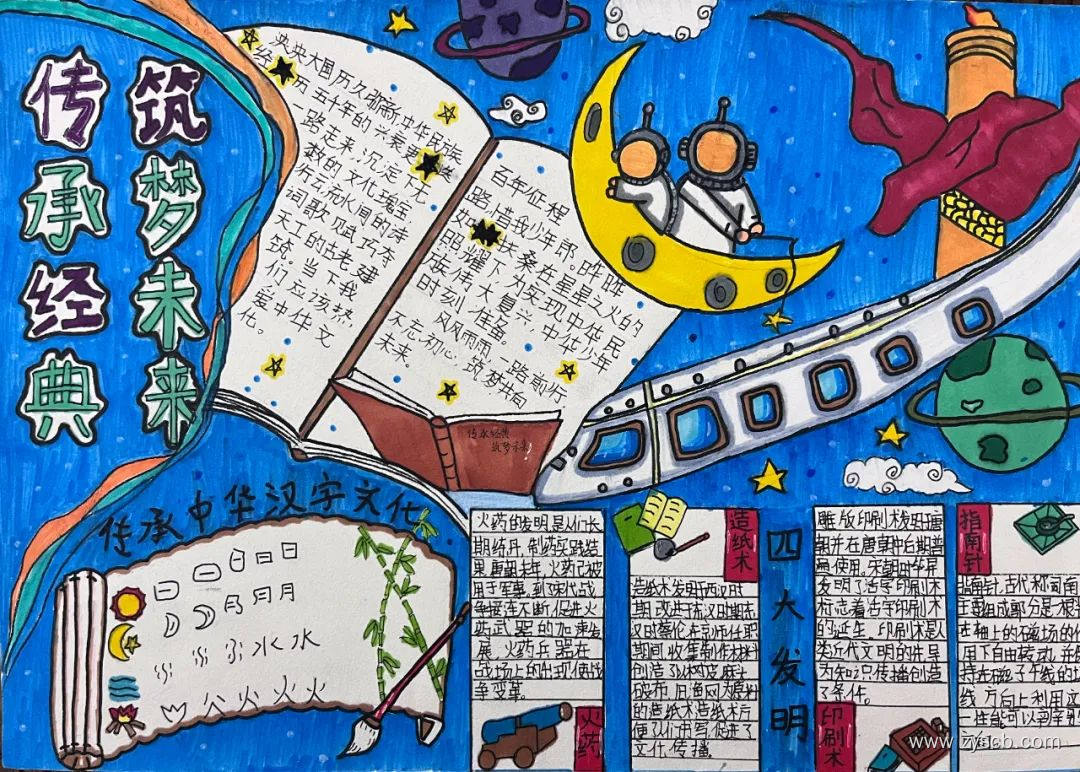 传承经典
筑梦未来
泱泱大国历久弥新,中华民族
经历五千年的兴衰更
一路走来,沉淀下无
数的文化瑰宝
有云流水间的诗
词歌赋,巧夺
天工的古老建
筑。当下我
们应该热
爱中华文
化。
百年征程
路,惜我少年郎。时
如扶桑在星星之火的
照耀下,为实现中华民
族伟大复兴,中华少年
时刻准备。
风风雨雨,一路前行
不忘初心,筑梦共向
未来。
传承经典
筑梦未来!
传承中华汉字文化
日日
月月
水水
火火
四大发明
火药的发明是人们长
期炼丹、制药实践结
果,唐朝末年,火药已被
用于军事,到宋代战
争接连不断,促进火
药武器的加速发
展,火药兵器在
战场上的出现,使战
争变革。
火药
造纸术
造纸术发明于西汉时
期,改进于东汉时期,东
汉时蔡伦在京师任职
期间,收集制作材料
创造了以树皮、麻头、
破布、旧渔网为原料
的造纸术,造纸术方
便了人们书写,促进了
文化传播。
雕版印刷术发明于唐
朝,并在唐朝中后期普
遍使用。宋朝时毕昇
发明了活字印刷术
标志着活字印刷术
的诞生。印刷术是人
类近代文明的先导
为知识传播创造
了条件。
印刷术
指南针
指南针,古代称司南
主要组成部分是一根
在轴上的磁场的作
用下自由转动,并保
持在磁子午线的切
线方向上,利用这
一性能可以辨别
方向.
www.zyscb.com